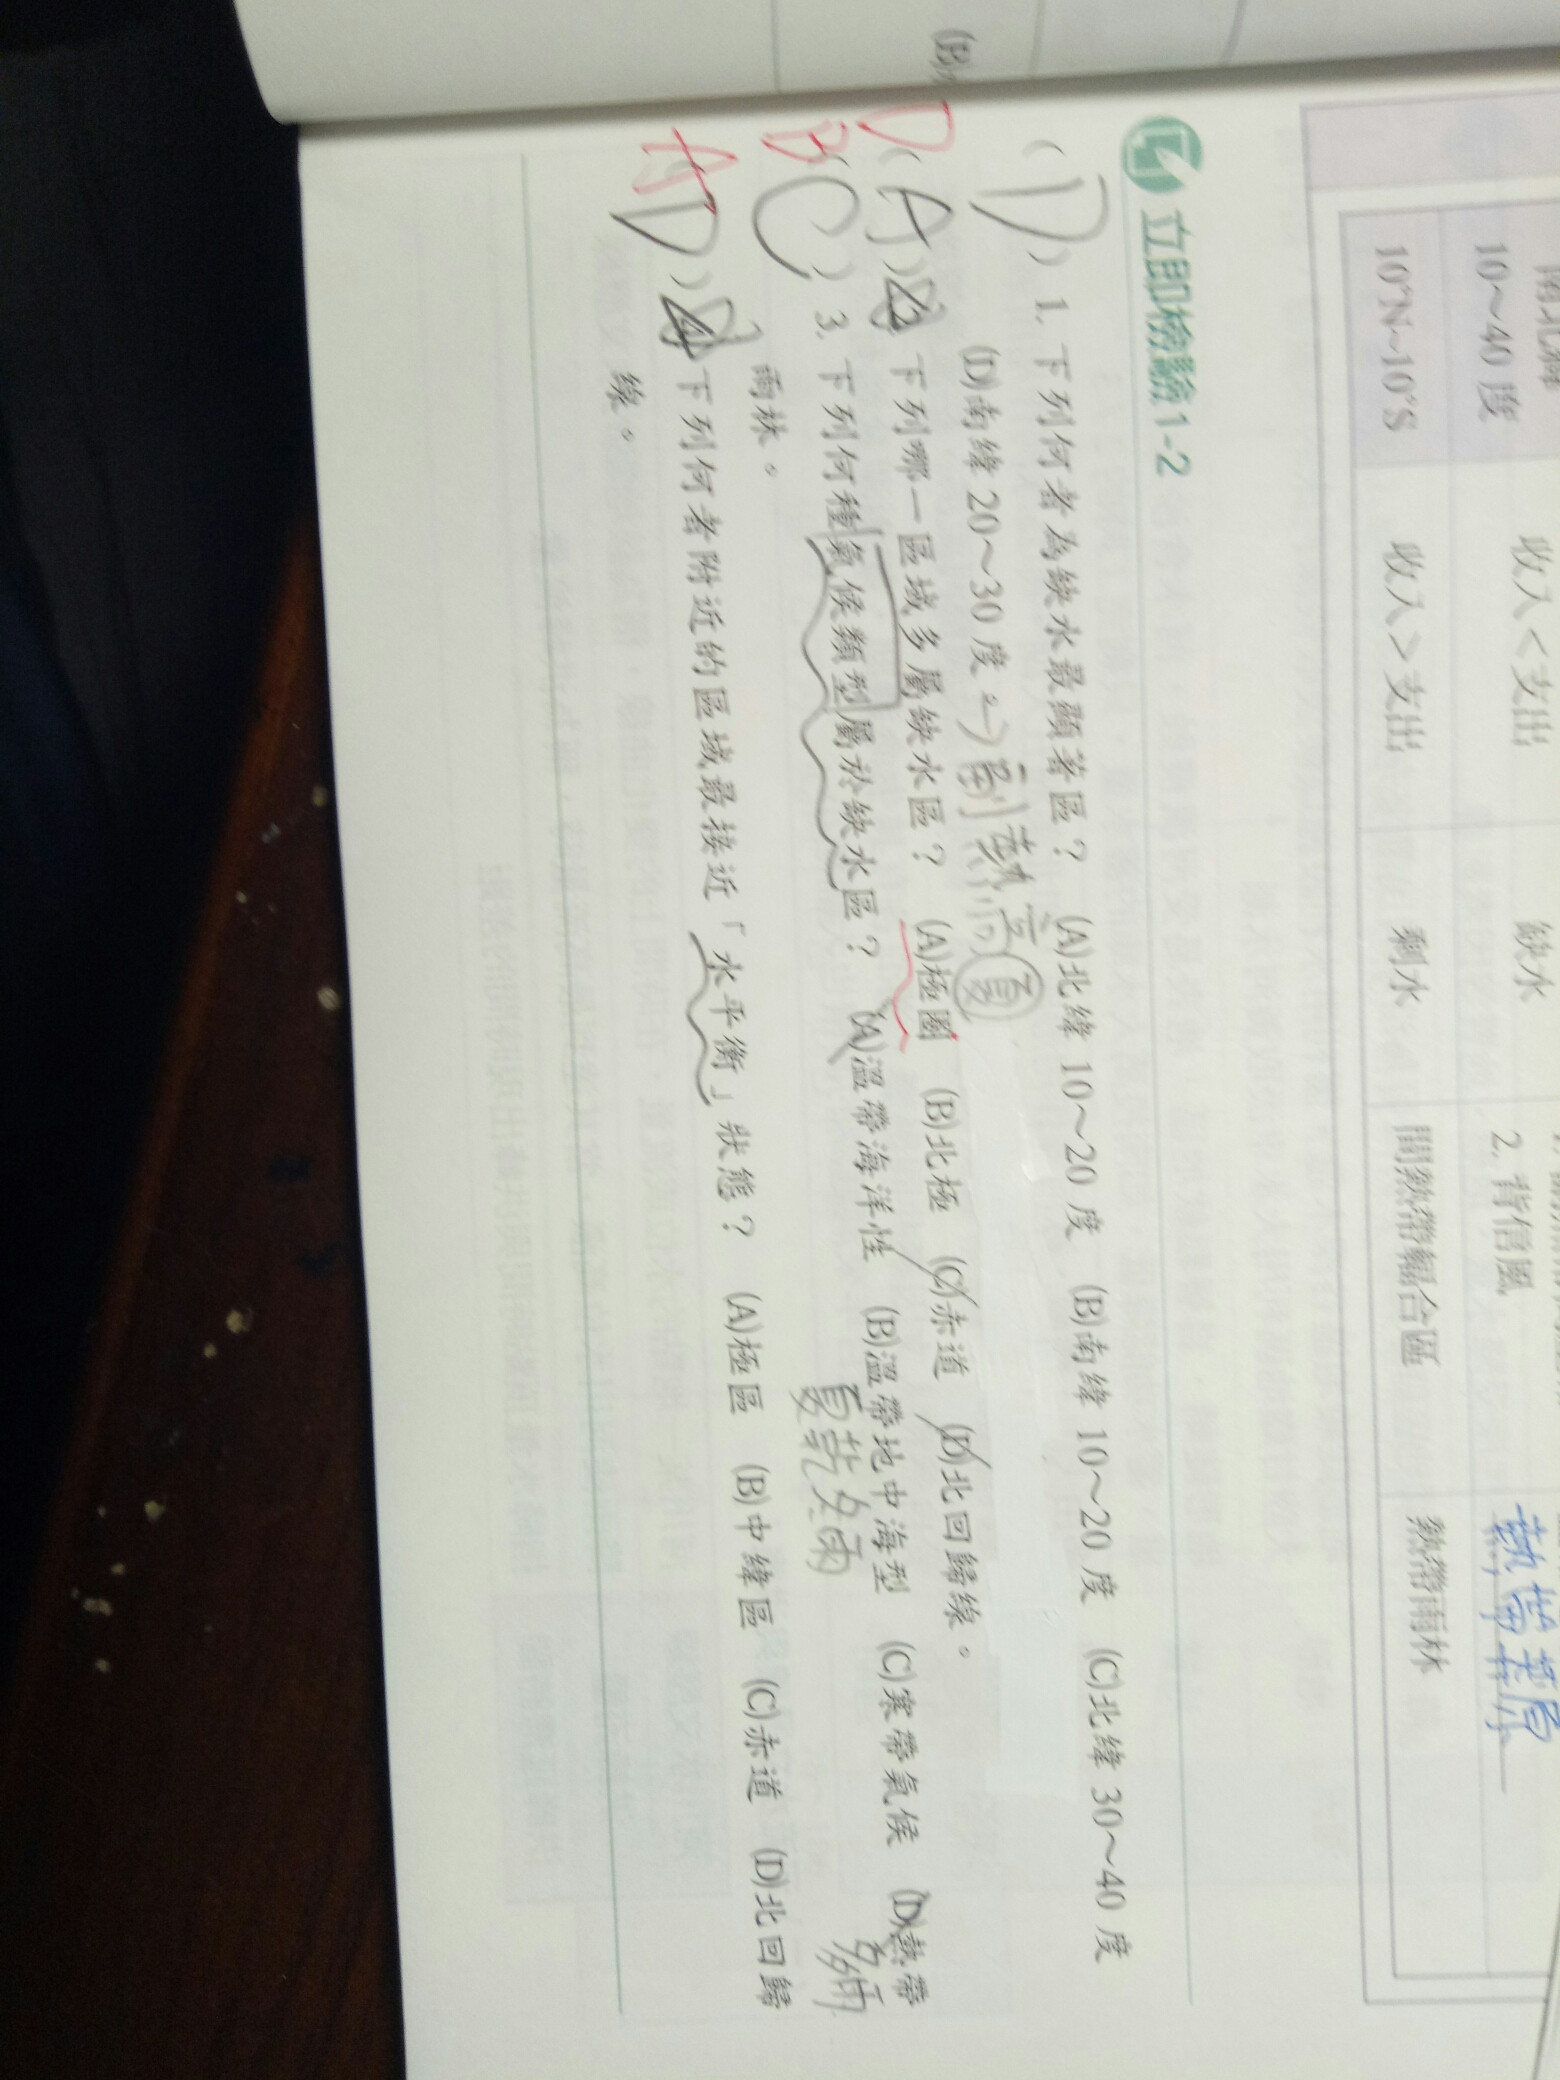 10~40 度
收入<支出
缺水
2. 背信風
10°N~10°S
收入>支出
剩水
間熱帶輻合區
熱帶雨林
立即檢驗1-2
( D ) 1. 下列何者為缺水最顯著區? (A)北緯 10~20 度 (B)南緯 10~20 度 (C)北緯 30~40 度
(D)南緯 20~30 度。
D ( A ) 2. 下列哪一區域多屬缺水區? (A)極圈 (B)北極 (C)赤道 (D)北回歸線。
B ( C ) 3. 下列何種氣候類型屬於缺水區? (A)溫帶海洋性 (B)溫帶地中海型 (C)寒帶氣候 (D)熱帶
夏乾冬雨
多雨
雨林。
A ( D ) 4. 下列何者附近的區域最接近「水平衡」狀態? (A)極區 (B)中緯區 (C)赤道 (D)北回歸
線。